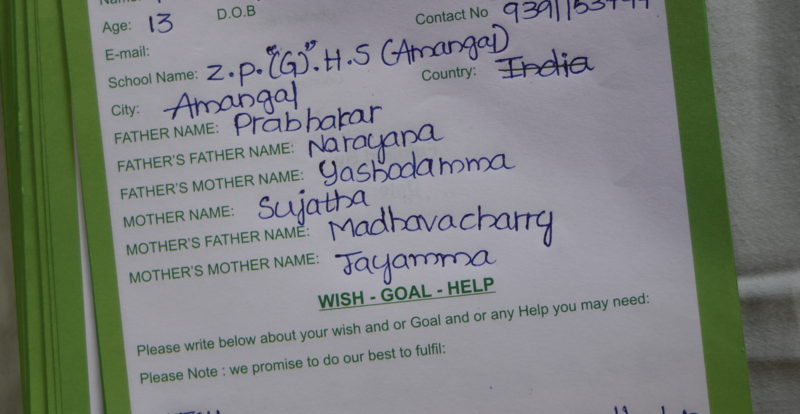 Age: 13 D.O.B Contact No
E-mail:
School Name: Z.P."(G)".H.S (Amangal)
City: Amangal Country: India
FATHER NAME: Prabhakar
FATHER'S FATHER NAME: Narayana
FATHER'S MOTHER NAME: Yashodamma
MOTHER NAME: Sujatha
MOTHER'S FATHER NAME: Madhavacharry
MOTHER'S MOTHER NAME: Jayamma
WISH - GOAL - HELP
Please write below about your wish and or Goal and or any Help you may need:
Please Note : we promise to do our best to fulfil: